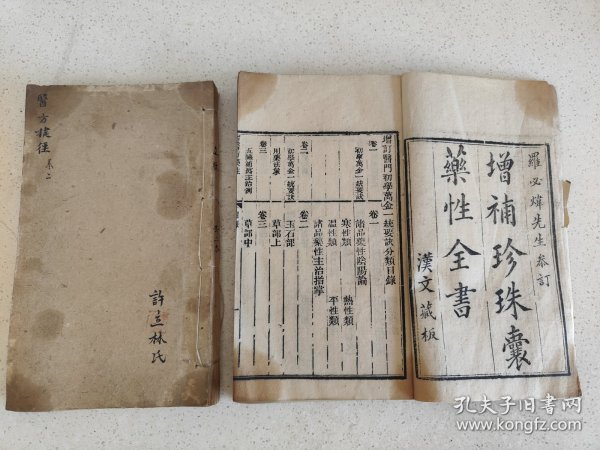 羅必煒先生參訂
增補珍珠囊
藥性全書
漢文藏板
增訂醫門初學萬金一統要訣分類目錄
卷一
卷一
初學萬金一統要訣
諸品藥性陰陽論
寒性類
熱性類
溫性類
平性類
卷二
諸品藥性主治指掌
初學萬金一統要訣
卷二
玉石部
用藥法象
草部上
卷三
卷三
草部中
醫方捷徑
卷二
許立林氏
孔夫子旧书网
www.kongfz.com